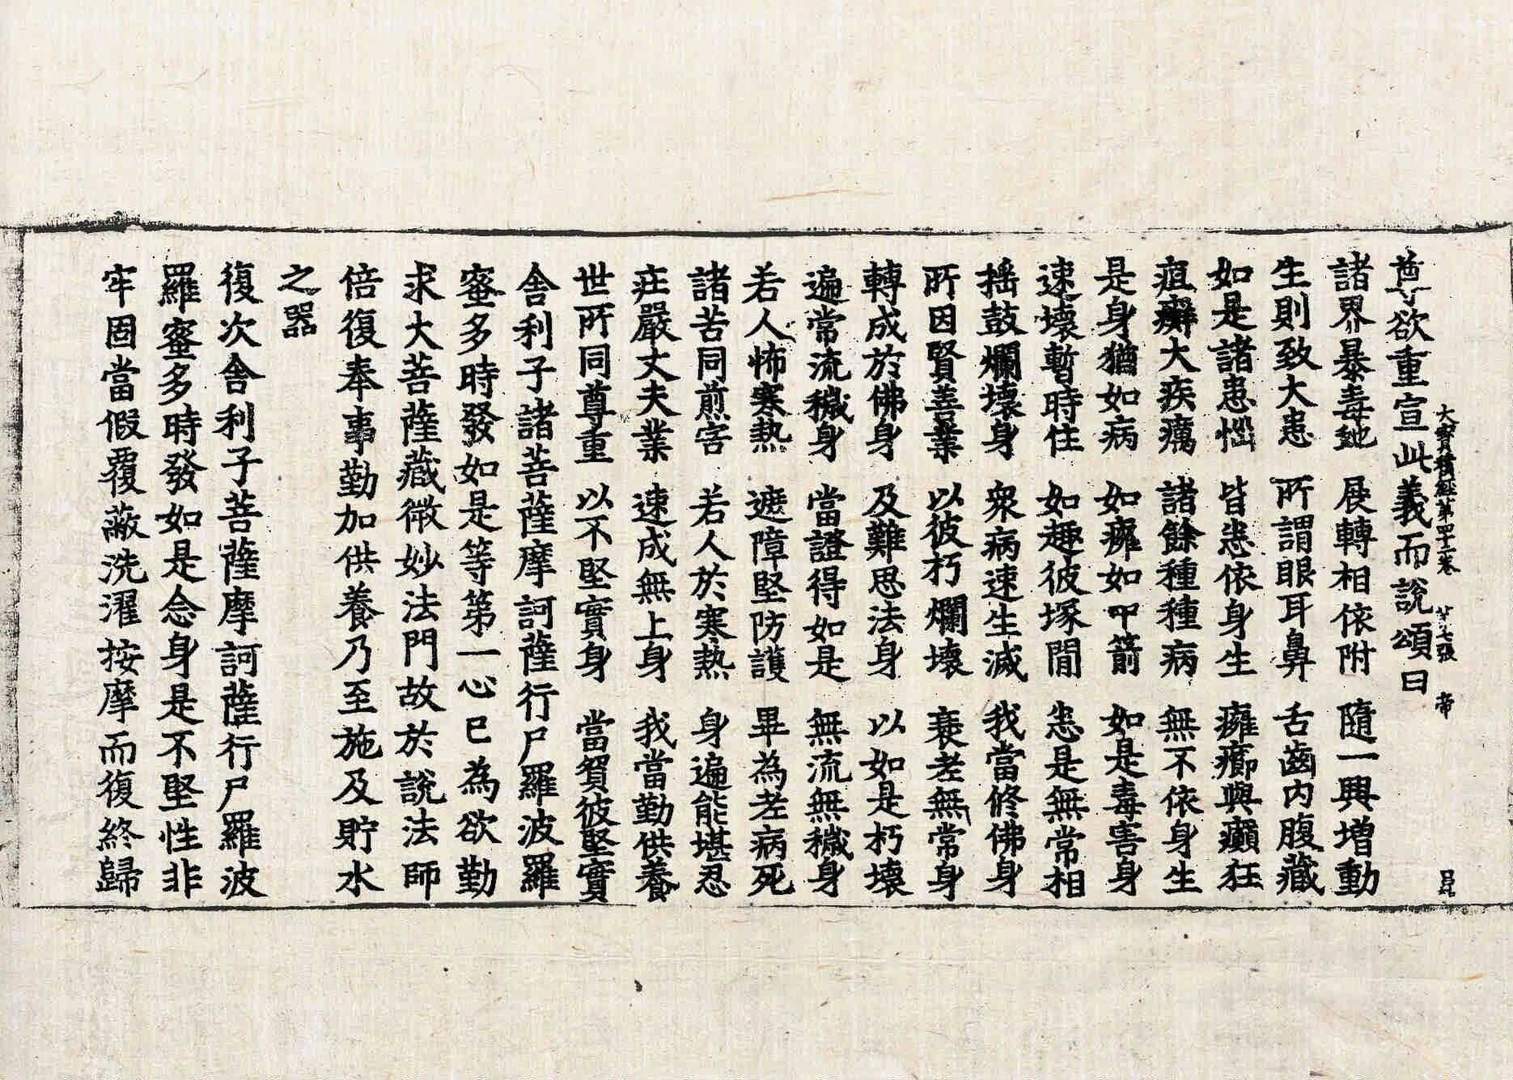 大寶積經第四十二卷 廿七張 帝
尊欲重宣此義而說頌曰
諸界暴毒虵 展轉相依附 隨一興增動
生則致大患 所謂眼耳鼻 舌齒內腹藏
如是諸患惱 皆悉依身生 癰癤與癲狂
疽癬大疾癘 諸餘種種病 無不依身生
是身猶如病 如癰如中箭 如是毒害身
速壞暫時住 如趣彼塚間 悉是無常相
搖鼓爛壞身 衆病速生滅 我當修佛身
所因賢善業 以彼朽爛壞 衰老無常身
轉成於佛身 及難思法身 以如是朽壞
遍常流穢身 當證得如是 無流無穢身
若人怖寒熱 遮障堅防護 畢為老病死
諸苦同煎害 若人於寒熱 身遍能堪忍
莊嚴丈夫業 速成無上身 我當勤供養
世所同尊重 以不堅實身 當貿彼堅實
舍利子諸菩薩摩訶薩行尸羅波羅
蜜多時發如是等第一心已為欲勤
求大菩薩藏微妙法門故於說法師
倍復奉事勤加供養乃至施及貯水
之器
復次舍利子菩薩摩訶薩行尸羅波
羅蜜多時發如是念身是不堅性非
牢固當假覆蔽洗濯按摩而復終歸